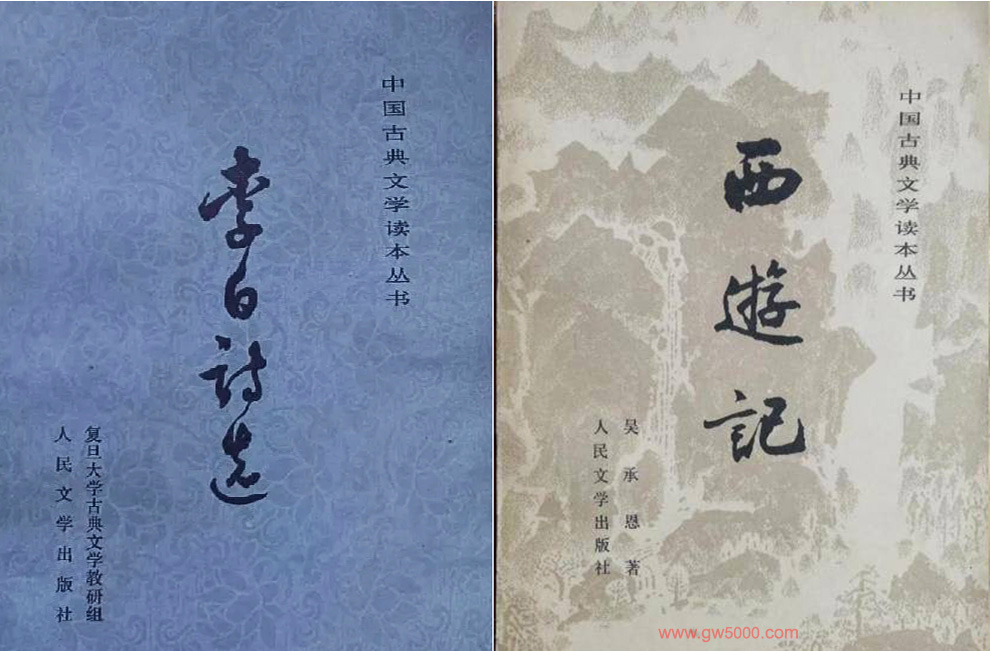 中国古典文学读本丛书
李白詩选
复旦大学古典文学教研组
人民文学出版社
中国古典文学读本丛书
西遊記
吴承恩著
人民文学出版社
www.gw5000.com